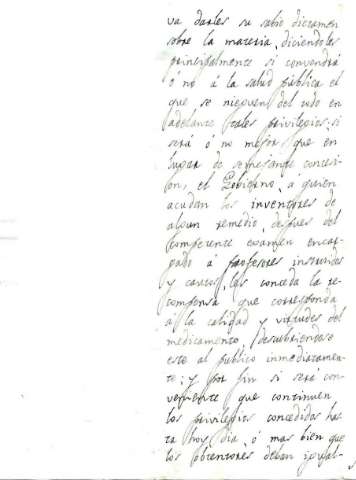 va darles su sabio dictamen
sobre la materia, diciendoles
principalmente si convendrá
ó no á la salud pública el
que se nieguen del todo en
adelante tales privilegios; si
será ó no mejor que en
lugar de semejante concesi-
on, el Gobierno, á quien
acudan los inventores de
algun remedio, despues del
competente examen encar-
gado á profesores instruidos
y cautos, les conceda la re-
compensa que corresponda
á la calidad y virtudes del
medicamento, descubriendose
este al público inmediatamen-
te; y por fin si será con-
veniente que continuen
los privilegios concedidos has-
ta hoy dia, ó mas bien que
los obtentores deban igual-